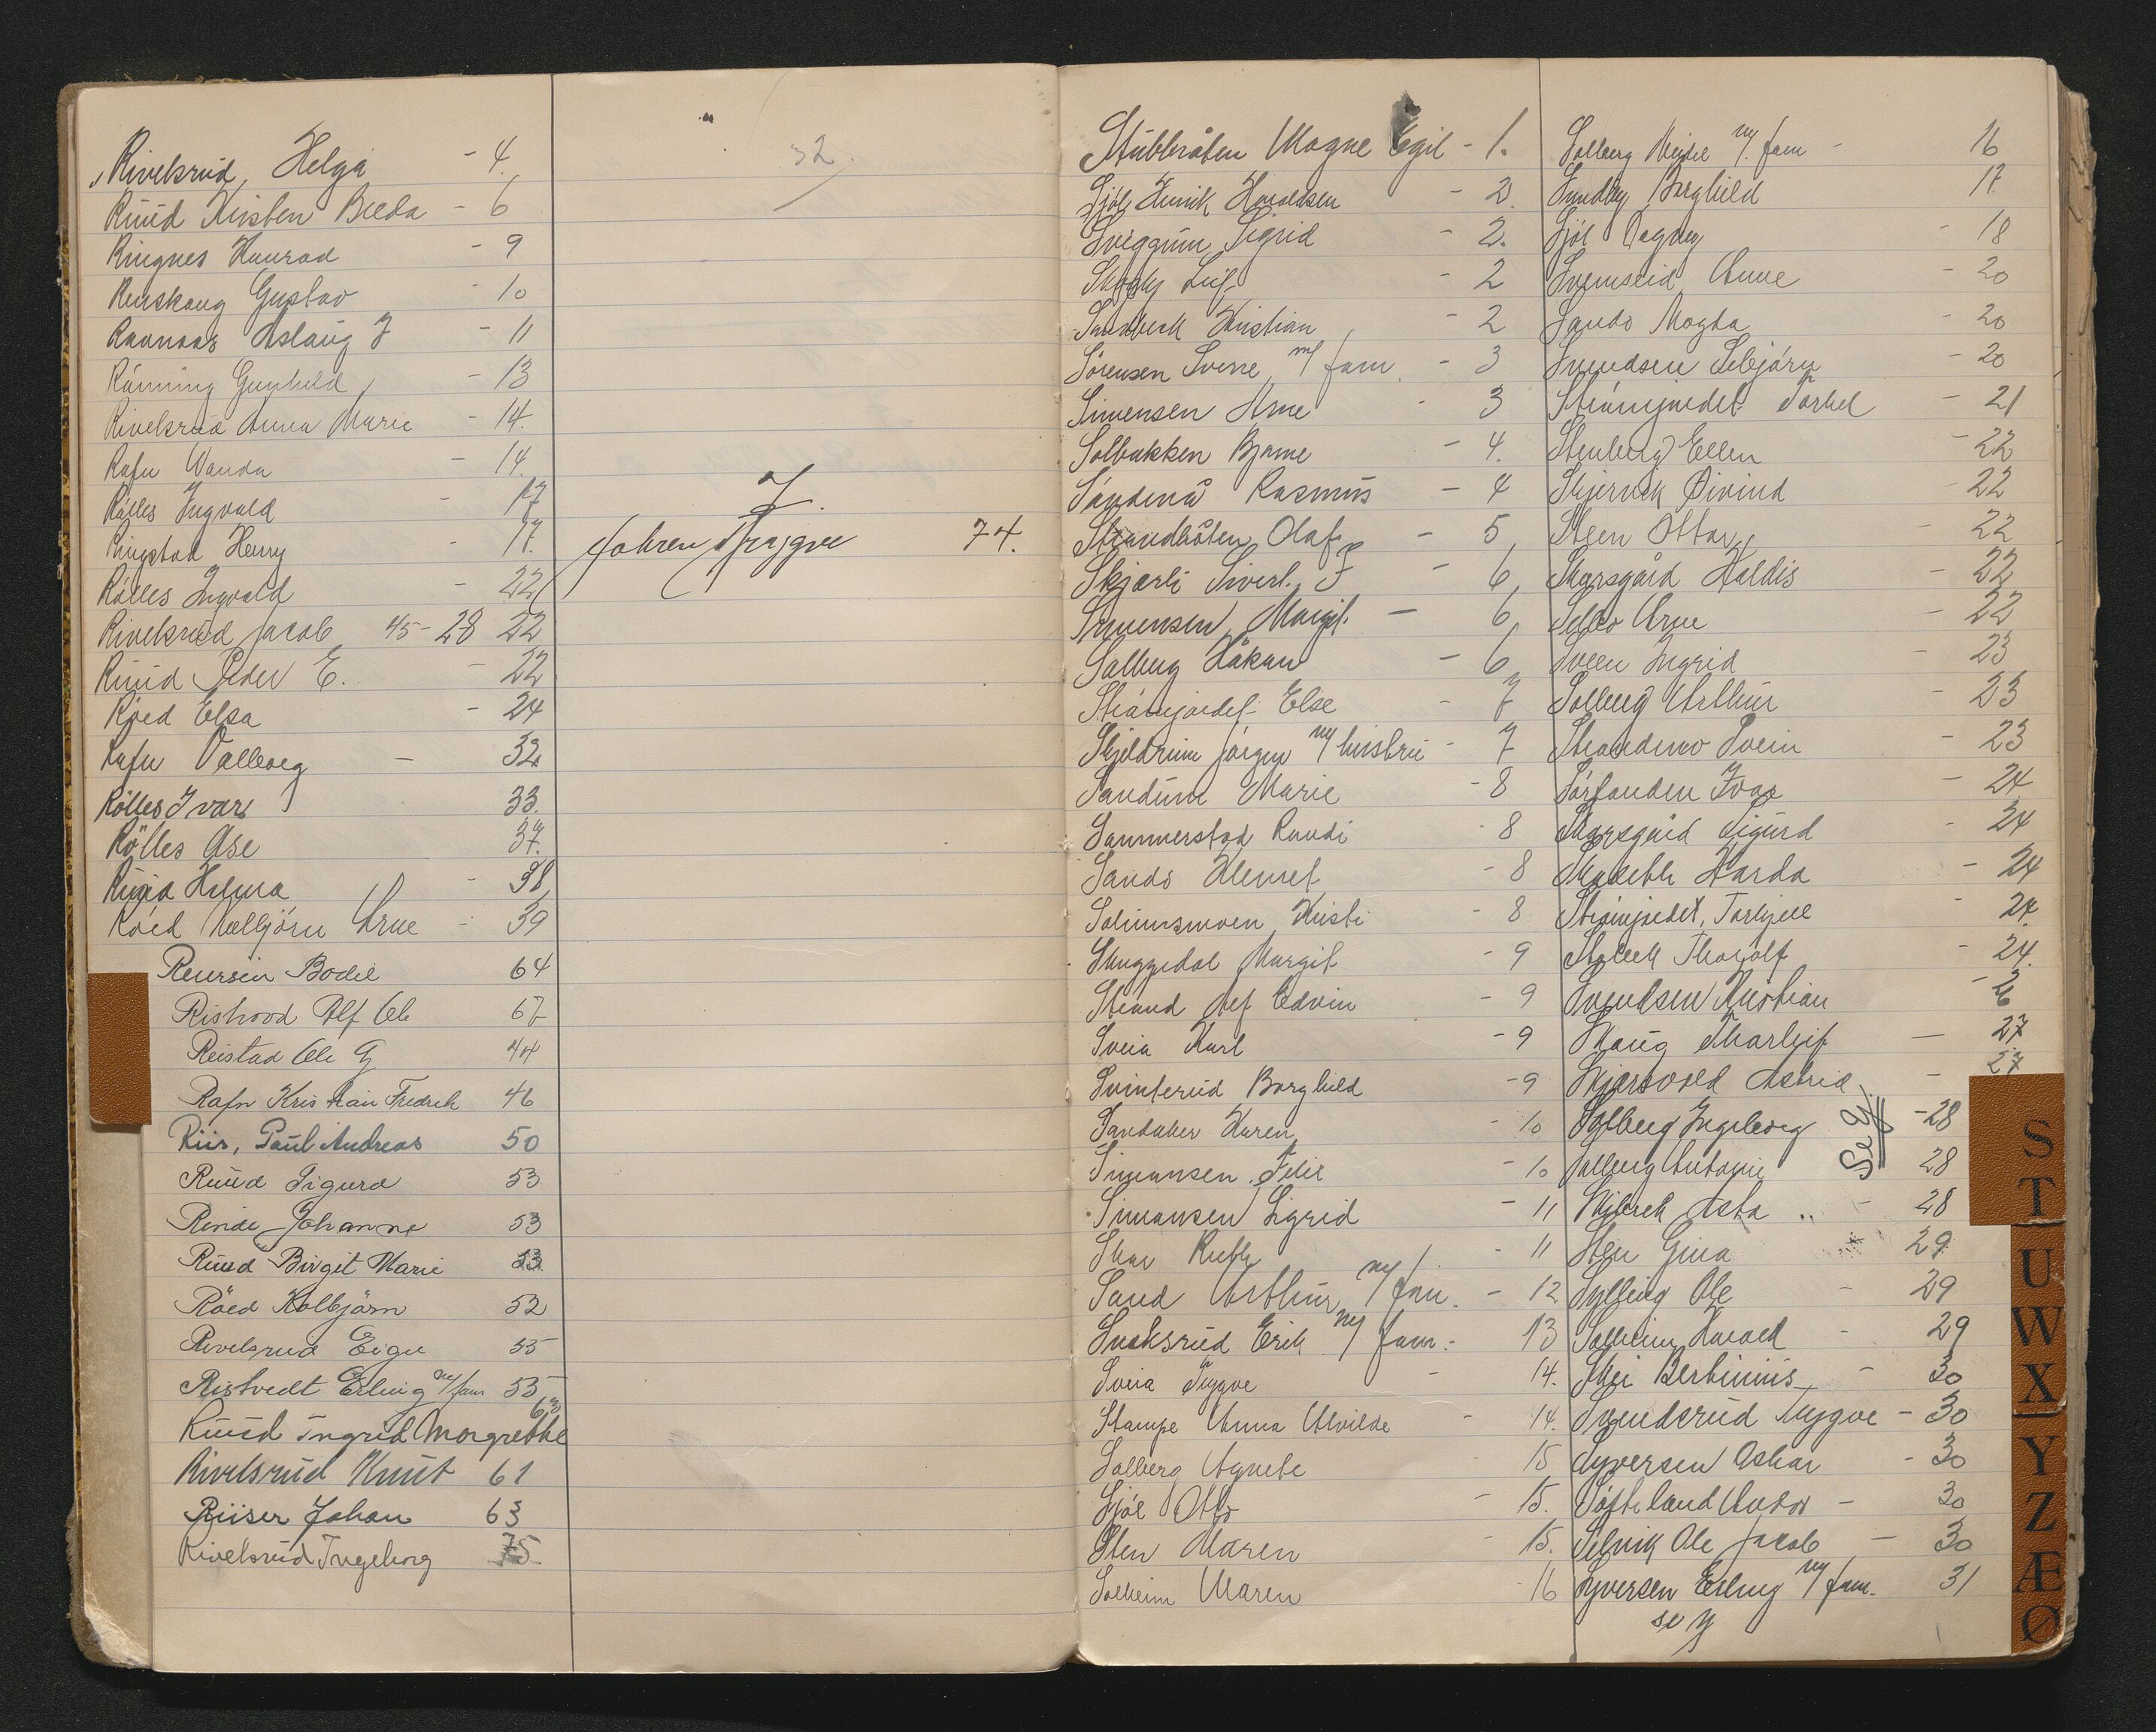 Rivelsrud, Helga - 4.
Ruud Kirsten Beeda - 6
Ringnes Konrad - 9
Renskaug Gustav - 10
Raanaas Aslaug J - 11
Rönning Gunhild - 13
Rivelsrud Anna Marie - 14.
Rafn Wanda - 14
Rölles Ingvald - 17
Ringstad Henry - 17.
Rölles Ingvald - 22
Rivelsrud Jacob 45 - 28 22
Ruud Peder E. - 22
Röed Elsa - 24
Rafn Valborg - 32
Rölles Ivar 33.
Rölles Åse 37.
Ruud Helma - 38
Röed Kolbjörn Arne - 39
Reiersen Bodil 64
Rishovd Alf Ole 67
Reistad Ole G 44
Rafn Kristian Fredrik 46
Riis, Paul Andreas 50
Ruud Sigurd 53
Rinde Johanne 53
Ruud Birgit Marie 53
Röed Kolbjörn 52
Rivelsrud Eigil 55
Ristvedt Erling m/fam 55
Ruud Ingrid Margrethe 63
Rivelsrud Knut 61
Riiser Johan 63
Rivelsrud Ingeborg 75.
32.
J
Johren Trygve 74.
Stubbråten Magne Egil - 1.
Sjöl Henrik Haraldsen - 2.
Sviggum Sigrid - 2.
Skogly Leif - 2
Sandbeck Kristian - 2
Sörensen Sverre m/fam. - 3
Simensen Arne - 3
Solbakken Bjarne - 4.
Såndenå Rasmus - 4
Strandbråten Olaf - 5
Skjærli Sivert. F - 6
Simensen Margit. - 6
Solberg Håkan - 6
Strömjordet Else - 7
Skjeldrum Jörgen m/hustru - 7
Sandum Marie - 8
Sammerstad Randi - 8
Sando Klemet - 8
Solumsmoen Kristi - 8
Skuggedal Margit - 9
Strand Alf Edvin - 9
Sveia Karl - 9
Svinterud Borghild - 9
Sandaker Karen - 10
Simensen Felix - 10
Simonsen Sigrid - 11
Skar Ruth - 11
Sand Arthur m/fam. - 12
Snoksrud Erik m/fam. - 13
Sveia Trygve - 14.
Stampe Anna Alvilde - 14.
Solberg Agnete - 15
Sjöl Otto - 15.
Sten Maren - 15.
Solheim Maren - 16
Solberg Meidel m/.fam - 16
Sundby Borghild 17
Sjöl Dagny - 18
Svenseid Anne - 20
Sando Magda - 20
Svendsen Asbjörn - 20
Strömjordet Torkel - 21
Stenberg Ellen - 22
Skjervik Öivind - 22
Steen Ottar - 22
Skarsgård Haldis - 22
Selbo Arne - 22
Sveen Ingrid - 23
Solberg Arthur - 23
Strandmo Svein - 23
Sörlanden Ivar - 24
Skarsgård Sigurd - 24
Strömjordet, Torkjell - 24
Svendsen Kristian - 26
Skaug Tharleif - 27
Skjærsvold Astrid - 27
Solberg Ingeborg - 28
Solberg Antonie 28
Se Y
Skibrek Asta - 28
Sten Gina 29
Sylling Ole - 29
Solheim Harald - 29
Skei Bertinius - 30
Svendsrud Trygve - 30
Syversen Oskar - 30
Söfteland Andor - 30
Selvik Ole Jacob - 30
Syversen Erling m/fam. 31
se Y
S
T
U
W
X
Y
Z
Æ
Ø